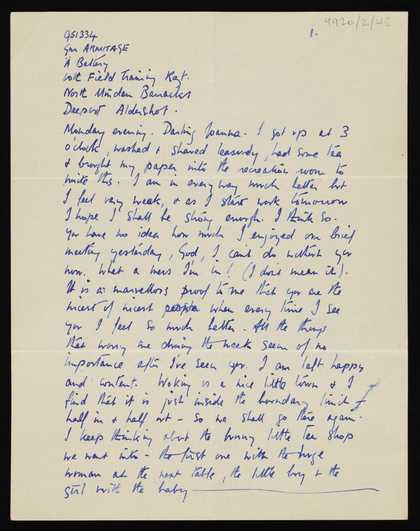 951334
Gnr ARMITAGE
1.
9920/2/42
A Battery
Field Training Regt.
North Minden Barracks
Deepcut Aldershot.
Monday evening. Darling Joanna. I got up at 3
o'clock, washed & shaved leasurely, had some tea
& brought my paper into the recreation room to
write this. I am in every way much better but
I feel very weak, & as I start work tomorrow
I hope I shall be strong enough. I think so.
You have no idea how much I enjoyed our brief
meeting yesterday, God, I can't do without you
now. What a mess I'm in! (I don't mean it).
It is a marvellous proof to me that you are the
nicest of nicest people when every time I see
you I feel so much better. All the things
that worry me during the week seem of no
importance after I've seen you. I am left happy
and content. Woking is a nice little town & I
find that it is just inside the boundary limit
half in & half out - so we shall go there again.
I keep thinking about the funny little tea shop
we went into - the first one with the huge
woman at the next table, the little boy & the
girl with the baby